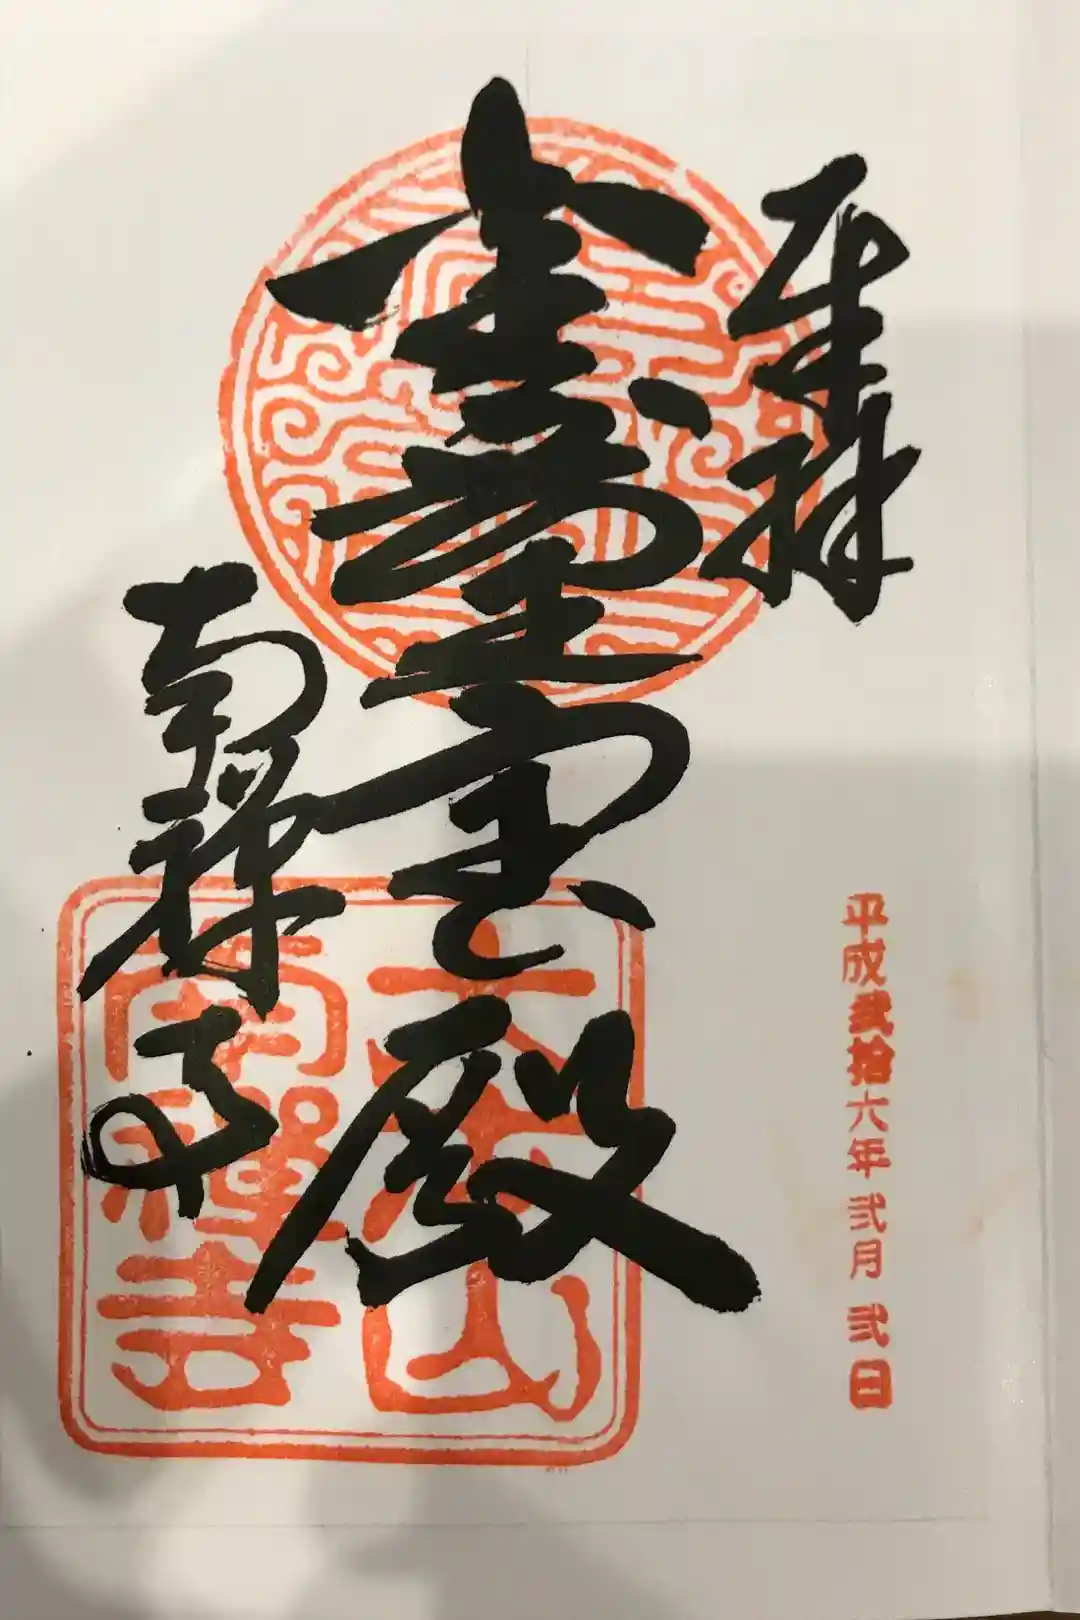 奉拝
平成弐拾六年弐月弐日
金剛王宝殿
南禅寺
大本山
南禪寺